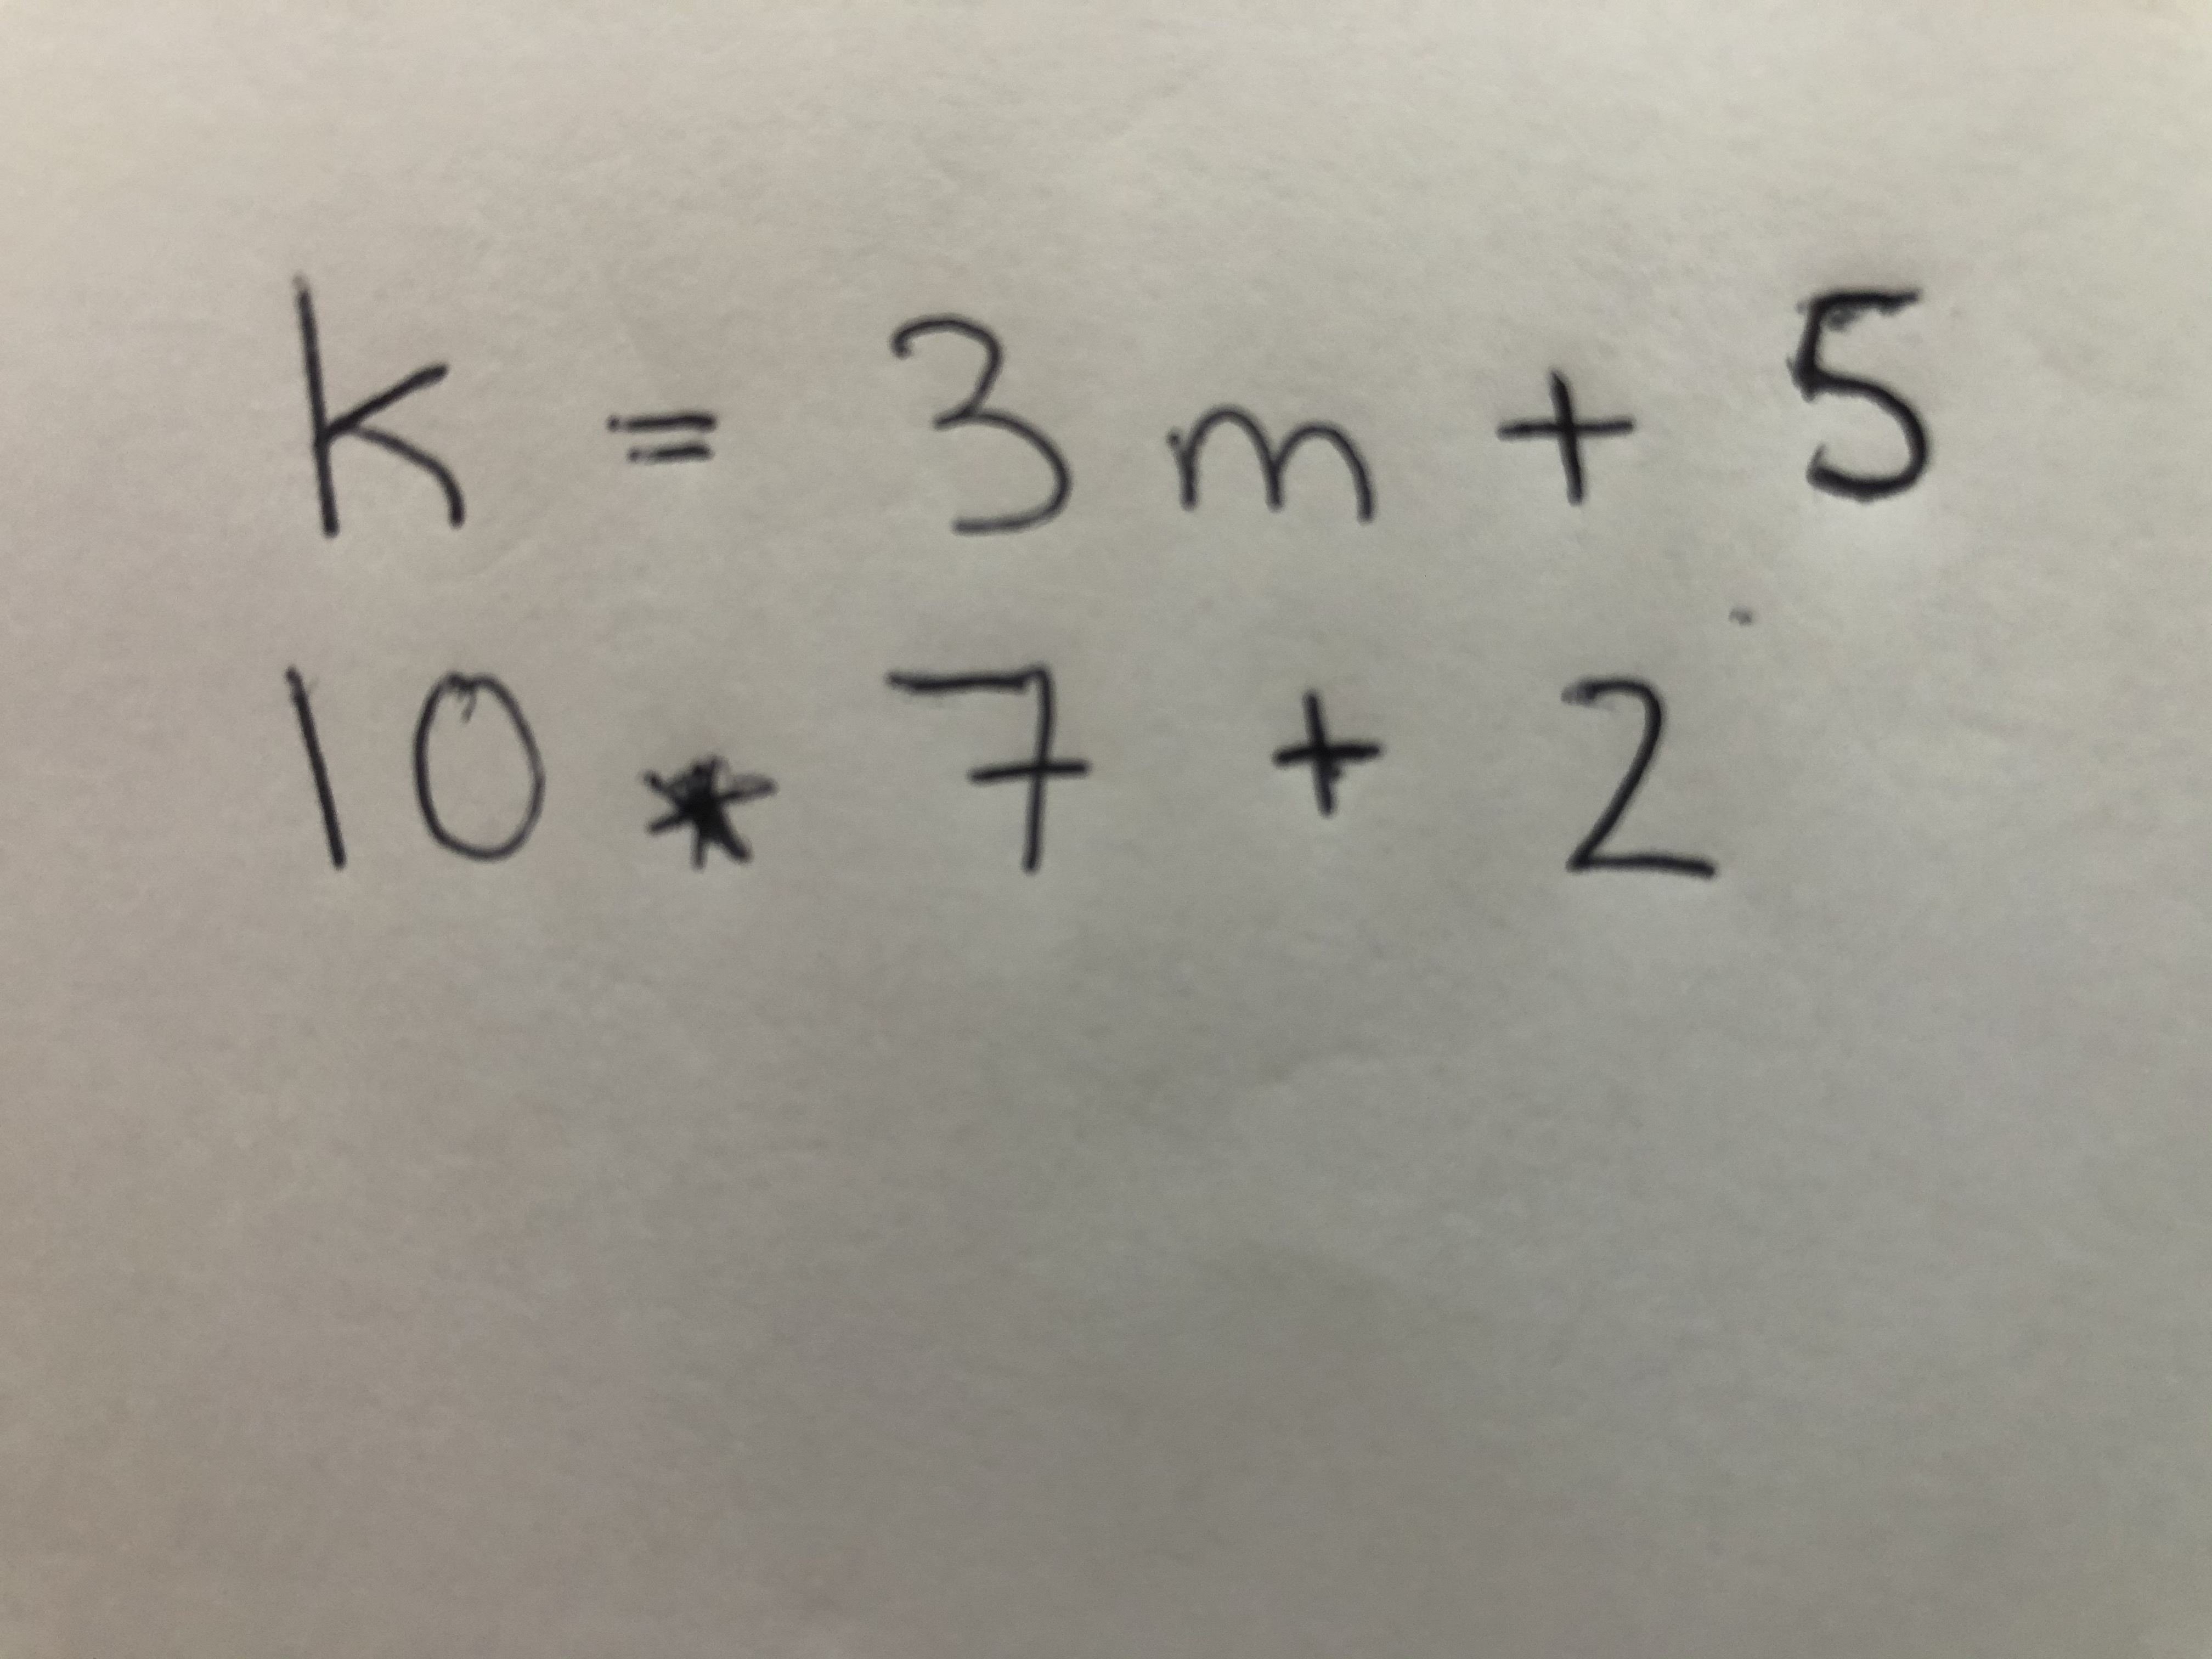 K = 3m + 5
10 * 7 + 2